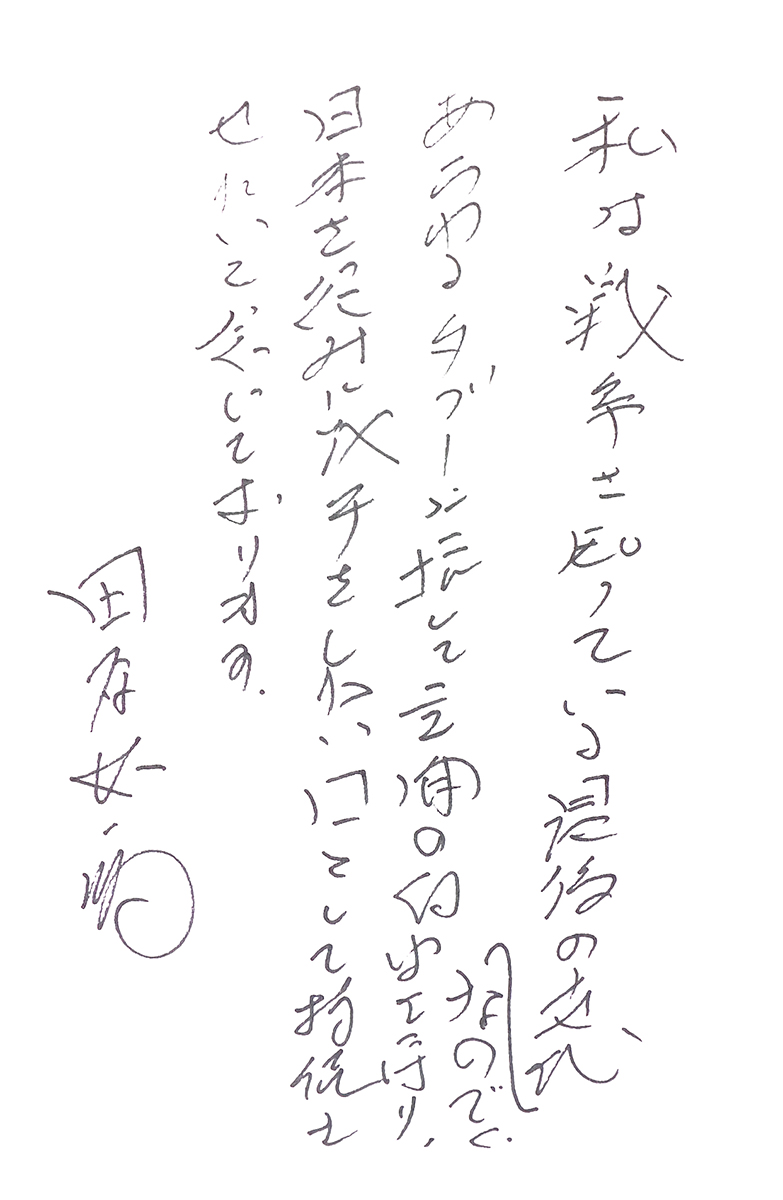 私は戦争を知っている最後の世代
なので、
あらゆるタブーに抗して言論の自由を守り、
日本を絶対に戦争をしない国として持続さ
せたいと念じております。
田原総一朗